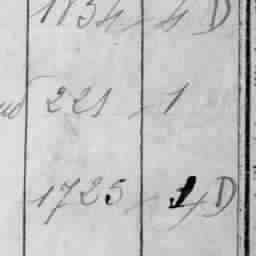 1834 - 4 D
221 - 1
1725 - 4 D